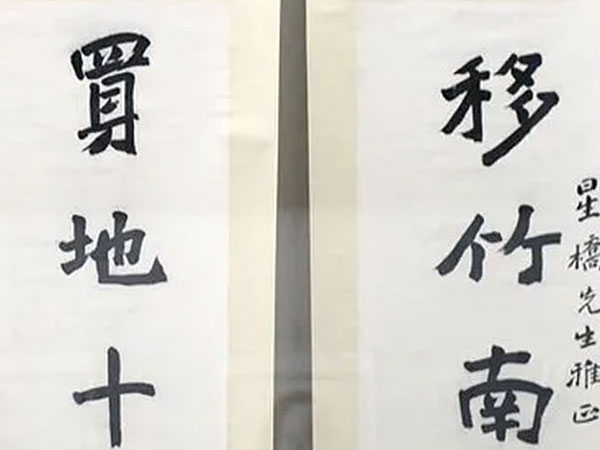 移竹南
星橋先生雅正
買地十